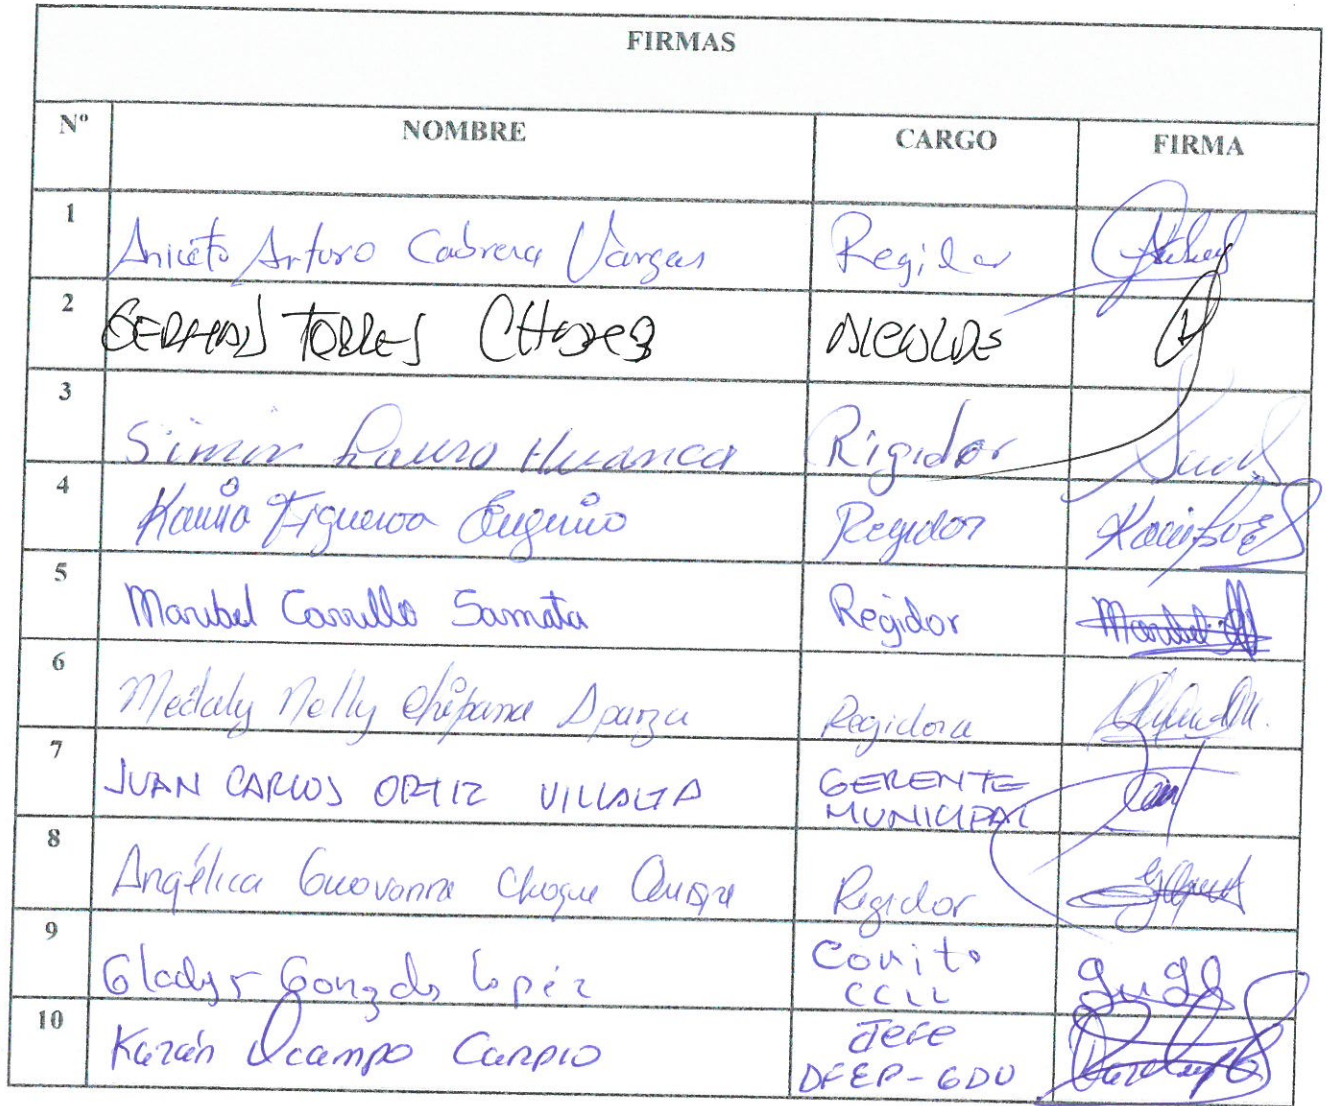 FIRMAS
Nº NOMBRE CARGO FIRMA
1 Aniceto Arturo Cabrera Vargas Regidor
2 GERMAN TORRES CHAMBI ALCALDE
3 Simón Lauro Huanca Rigidor
4 Kamila Figueroa Eugenio Regidor
5 Maribel Carrillo Samata Regidor Maribel
6 Medaly Nelly Chipana Aparza Regidora
7 JUAN CARLOS ORTIZ VILLALTA GERENTE
MUNICIPAL
8 Angélica Guovanna Choque Quispe Regidor
9 Gladys Gonzales Lopéz Comité
CCLL
10 Karán Ocampo Carpio Jefe
DFEP-GDU